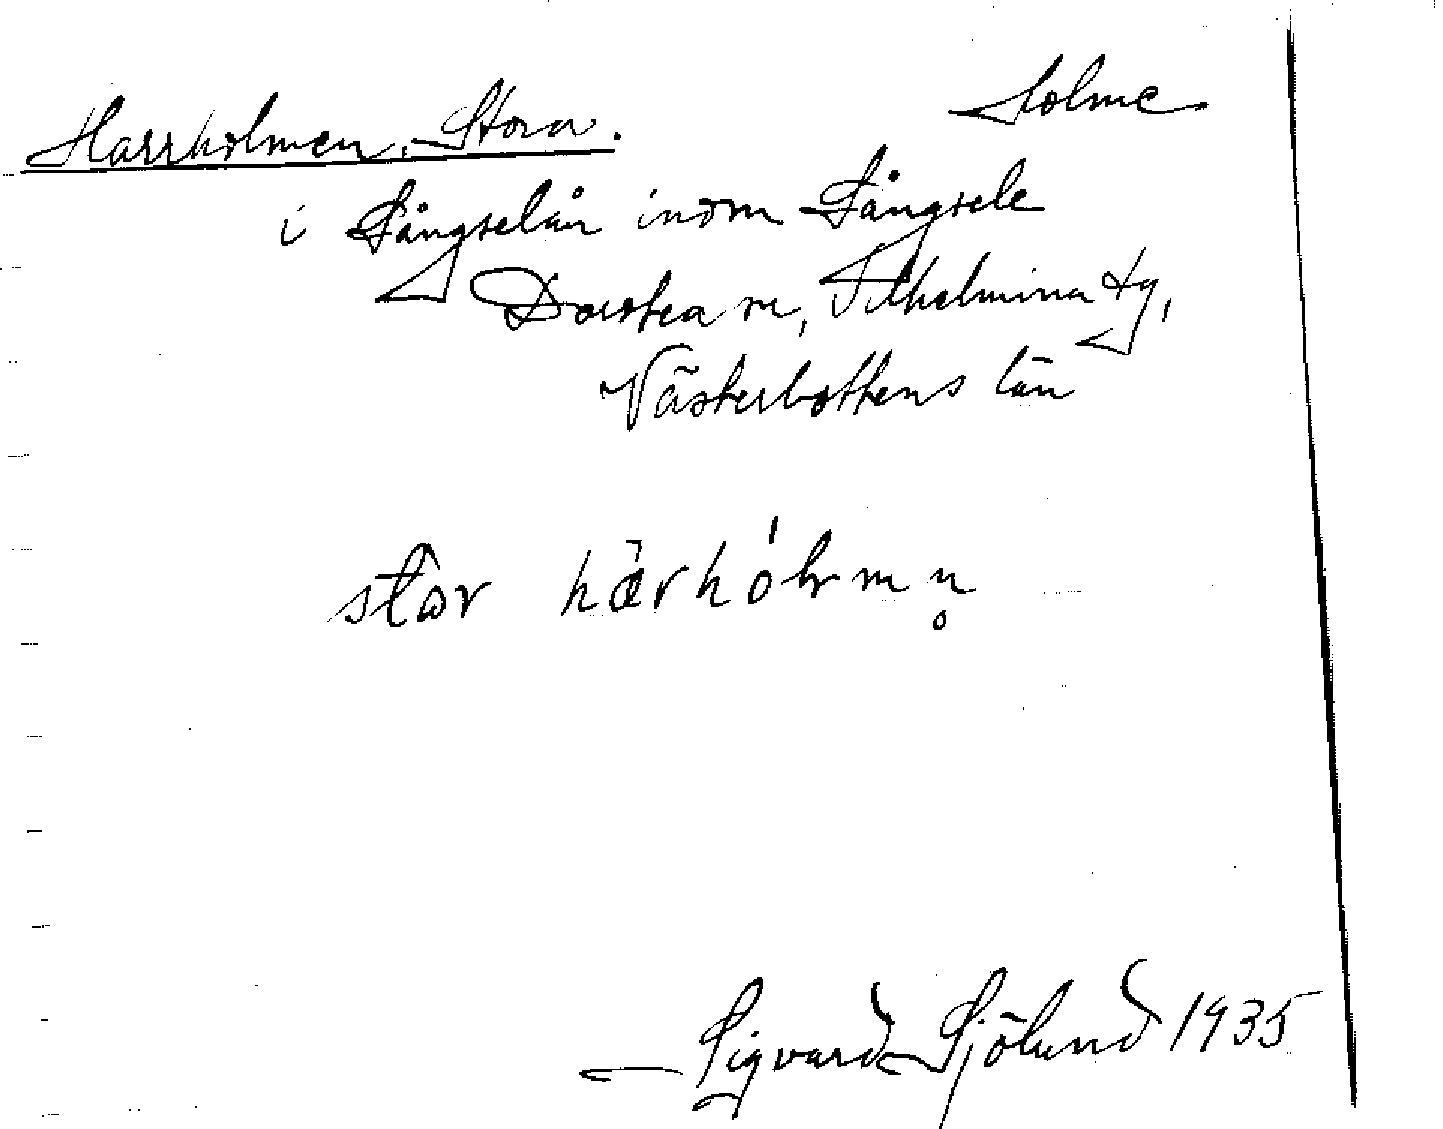 Harrholmen, Stora. Holme
i Långselån inom Långsele
Dorotea sn, Vilhelmina tg,
Västerbottens län
Sigvard Sjölund 1935